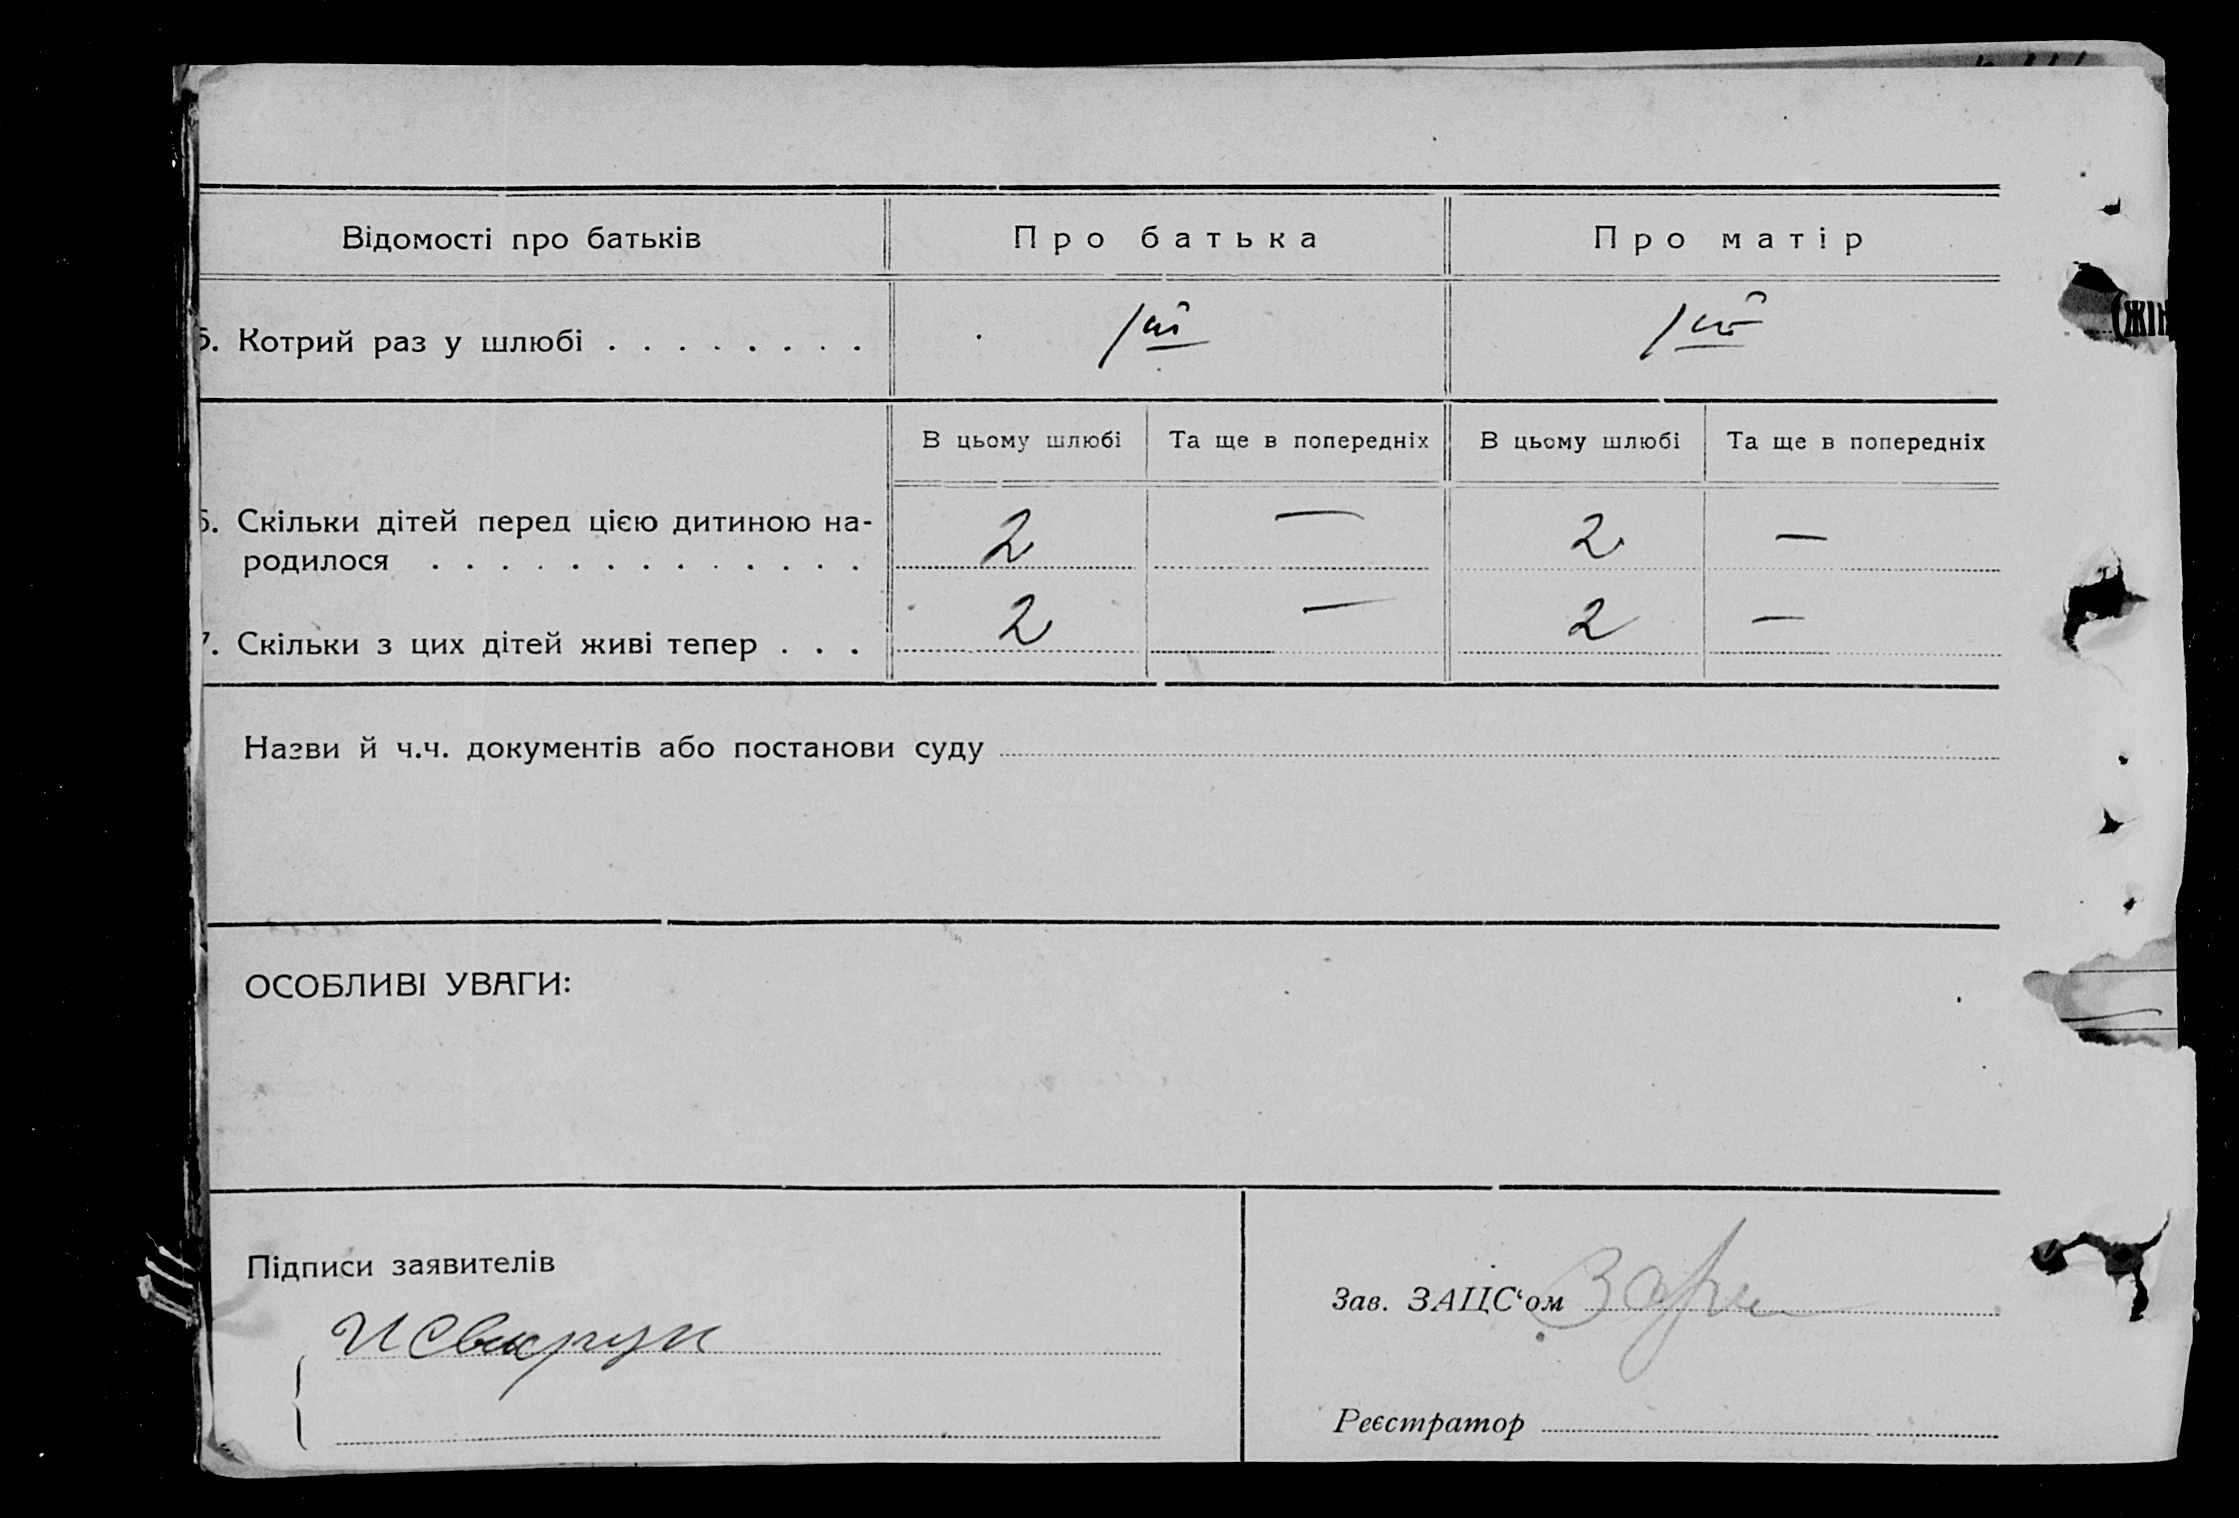 Відомості про батьків Про батька Про матір
5. Котрий раз у шлюбі . . . . . . . . 1ий 1ий
В цьому шлюбі Та ще в попередніх В цьому шлюбі Та ще в попередніх
6. Скільки дітей перед цією дитиною на-
родилося . . . . . . . . . . . . . 2 — 2 —
7. Скільки з цих дітей живі тепер . . . 2 — 2 —
Назви й ч.ч. документів або постанови суду
ОСОБЛИВІ УВАГИ:
Підписи заявителів
Зав. ЗАЦС‘ом
Реєстратор
(жін